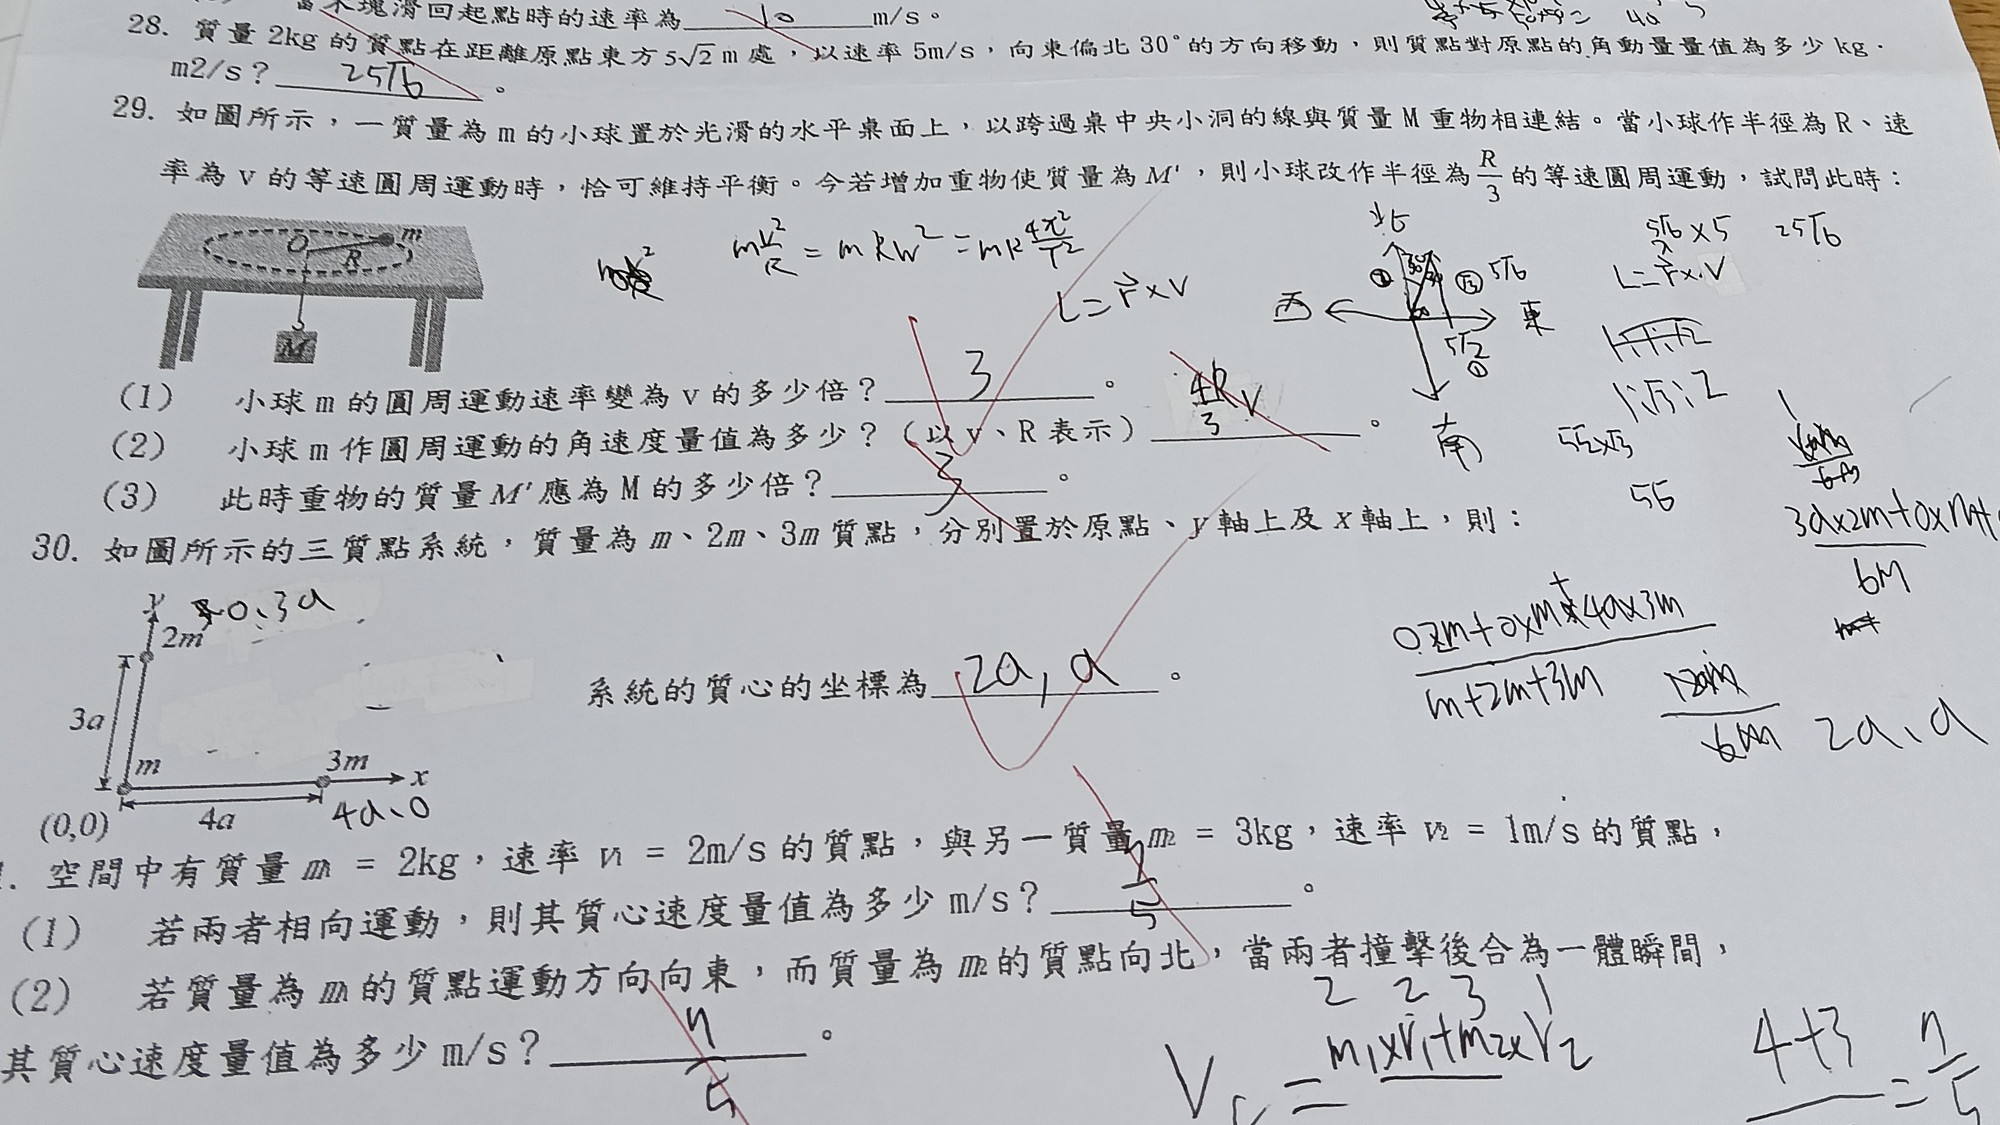 當木塊滑回起點時的速率為 10 m/s。
28. 質量 2kg 的質點在距離原點東方 5√2 m 處，以速率 5m/s，向東偏北 30°的方向移動，則質點對原點的角動量量值為多少 kg·
m2/s？ 25√6 。
29. 如圖所示，一質量為 m 的小球置於光滑的水平桌面上，以跨過桌中央小洞的線與質量 M 重物相連結。當小球作半徑為 R、速
率為 v 的等速圓周運動時，恰可維持平衡。今若增加重物使質量為 M'，則小球改作半徑為 R/3 的等速圓周運動，試問此時：
O R m
M
mv²/R = mRw² = mR 4π²/T²
L = r⃗ × v
北
西 東
南
5√2
5√6
5√6/2 × 5 25√6
L = r⃗ × v
1:√3:2
5√2×√3
5√6
(1) 小球 m 的圓周運動速率變為 v 的多少倍？ 3 。
(2) 小球 m 作圓周運動的角速度量值為多少？（以 v、R 表示） 4R/3 v 。
(3) 此時重物的質量 M'應為 M 的多少倍？ 3 。
30. 如圖所示的三質點系統，質量為 m、2m、3m 質點，分別置於原點、y 軸上及 x 軸上，則：
y 0、3a
2m
3a
m 3m x
(0,0) 4a 4a、0
系統的質心的坐標為 2a, a 。
3a×2m+0×m+
6m
0.2m+0×m+4a×3m
m+2m+3m
12am
6m
2a、a
空間中有質量 m1 = 2kg，速率 v1 = 2m/s 的質點，與另一質量 m2 = 3kg，速率 v2 = 1m/s 的質點，
(1) 若兩者相向運動，則其質心速度量值為多少 m/s？ 7/5 。
(2) 若質量為 m1 的質點運動方向向東，而質量為 m2 的質點向北，當兩者撞擊後合為一體瞬間，
其質心速度量值為多少 m/s？ 7/5 。
2 2 3 1
Vc = m1×v1+m2×v2
4+3 = 7/5